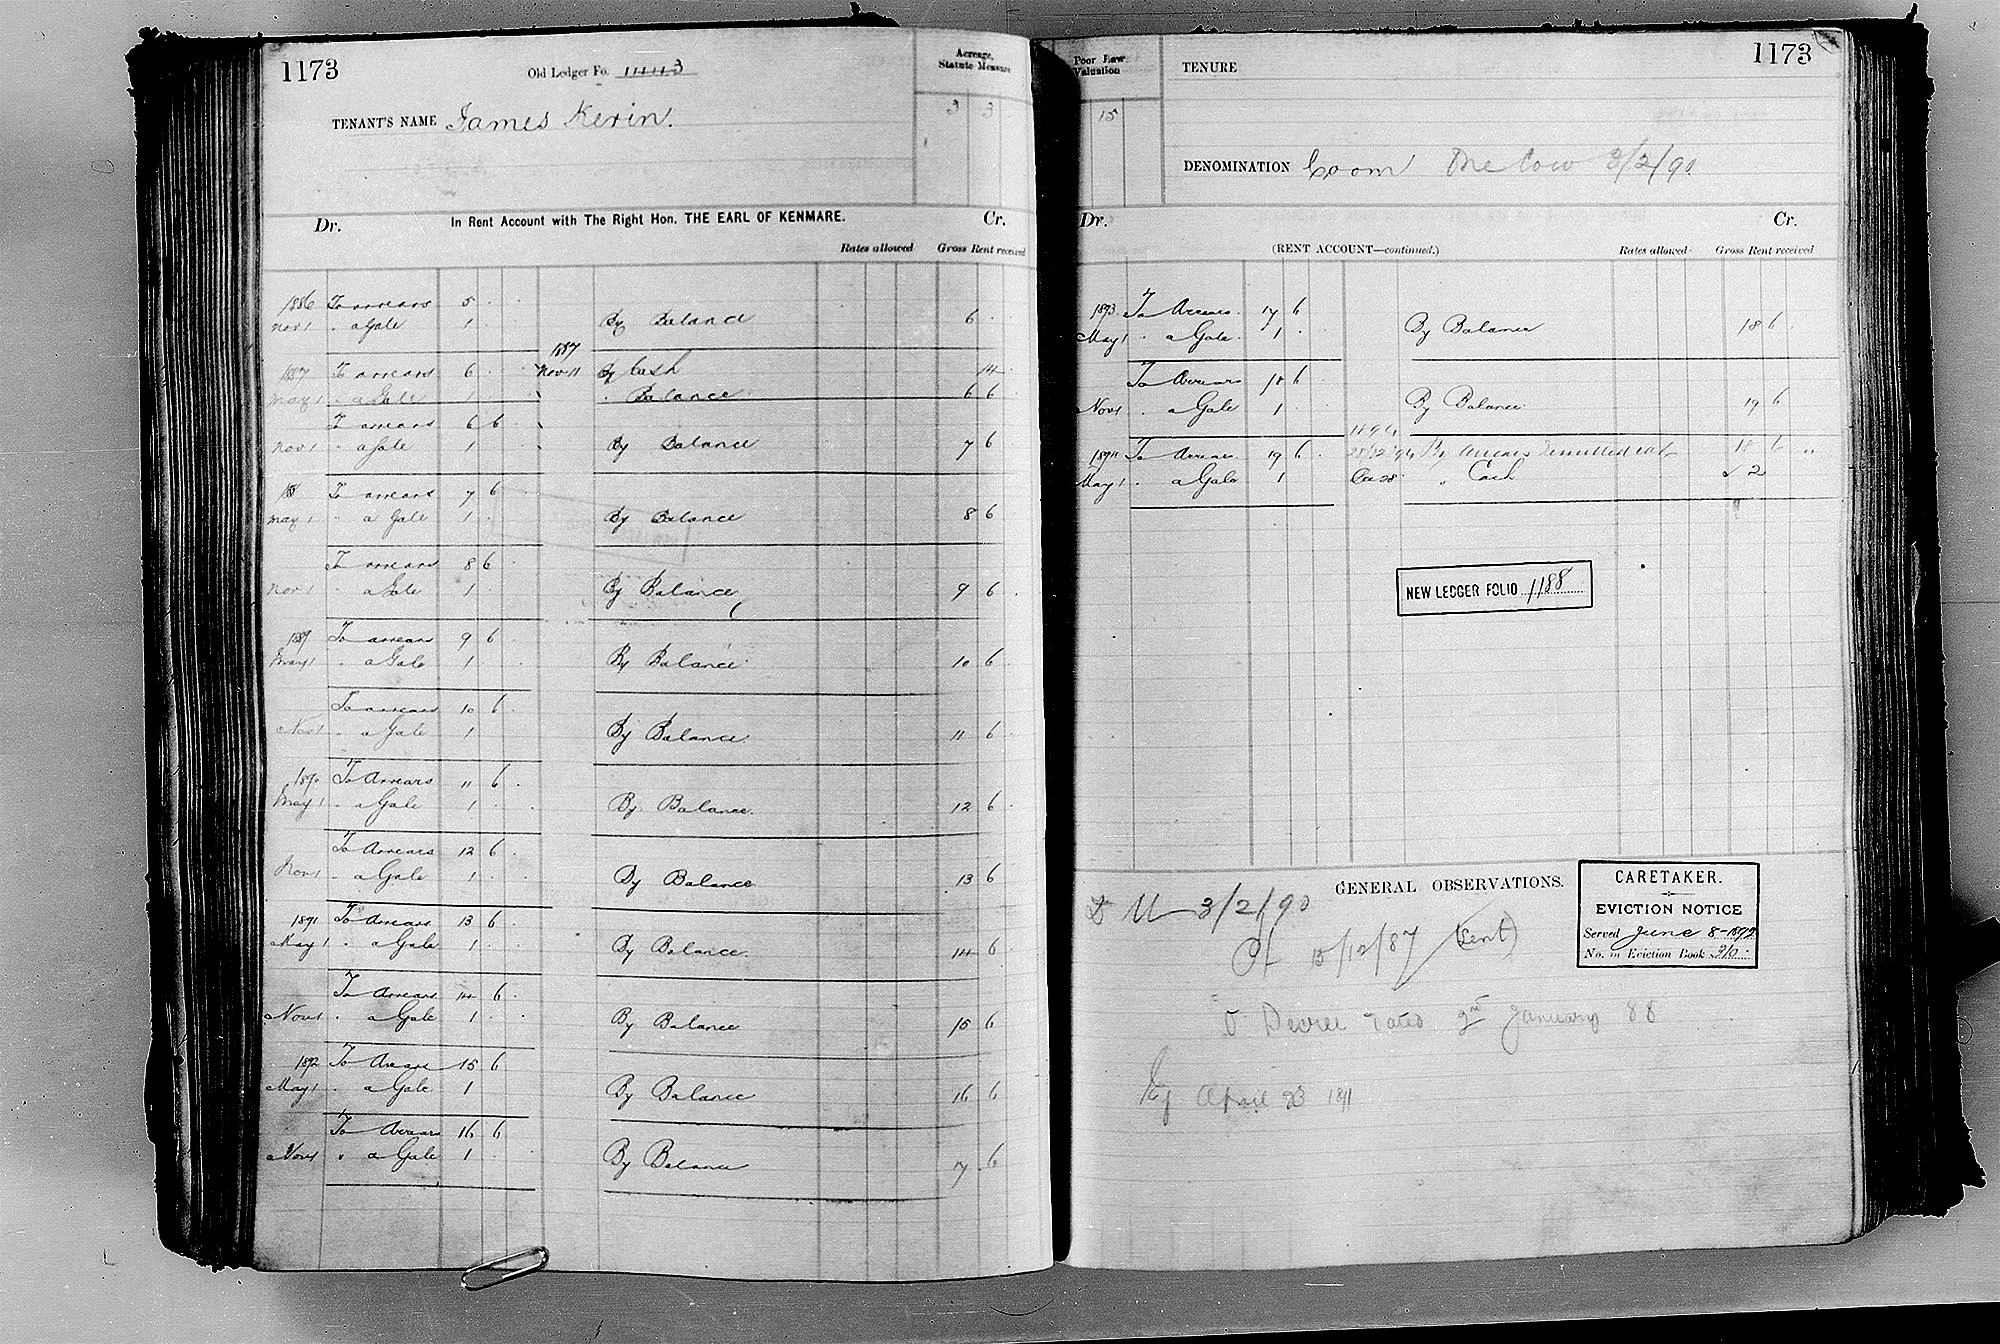 1173
Old Ledger Fo. 11443
Acreage, Statute Measure
TENANT'S NAME James Kerin.
3 3
Dr. In Rent Account with The Right Hon. THE EARL OF KENMARE. Cr.
Rates allowed Gross Rent received
1886 To arrears 5 . .
Nov 1 " a Gale 1 . By Balance 6 . .
1887
1887 To arrears 6 . . Nov 11 By Cash 14 .
May 1 " a Gale 1 . " Balance 6 6
To arrears 6 6 .
Nov 1 " a Gale 1 . By Balance 7 6
To arrears 7 6 .
May 1 " a Gale 1 . By Balance 8 6
To arrears 8 6 .
Nov 1 " a Gale 1 . By Balance 9 6 .
1889 To arrears 9 6 .
May 1 " a Gale 1 . By Balance 10 6
To arrears 10 6 .
Nov 1 " a Gale 1 By Balance. 11 6
1890 To Arrears 11 6 .
May 1 " a Gale 1 . By Balance. 12 6 .
To Arrears 12 6 .
Nov 1 " a Gale 1 . By Balance 13 6
1891 To Arrears 13 6 .
May 1 " a Gale 1 . By Balance. 14 6
To Arrears 14 6 .
Nov 1 " a Gale 1 . By Balance 15 6
1892 To Arrears 15 6
May 1 " a Gale 1 By Balance 16 6
To Arrears 16 6
Nov 1 " a Gale 1 . By Balance 17 6
Poor Law Valuation
TENURE
1173
15
DENOMINATION Coom One Cow 3/2/90
Dr. Cr.
(RENT ACCOUNT—continued.) Rates allowed Gross Rent received
1893 To Arrears 17 6
May 1 " a Gale 1 . By Balance 18 6
To Arrears 18 6
Nov 1 " a Gale 1 . By Balance 19 6
1894
1894 To Arrears 19 6 . By Arrears Remitted 18 6 "
May 1 " a Gale 1 Dec 28 " Cash 2
NEW LEDGER FOLIO 1188
GENERAL OBSERVATIONS.
3/2/90
15/12/87 (Sent)
Decree Dated 2nd January 88
April 23 1891
CARETAKER.
EVICTION NOTICE
Served June 8-1892
No. in Eviction Book 210